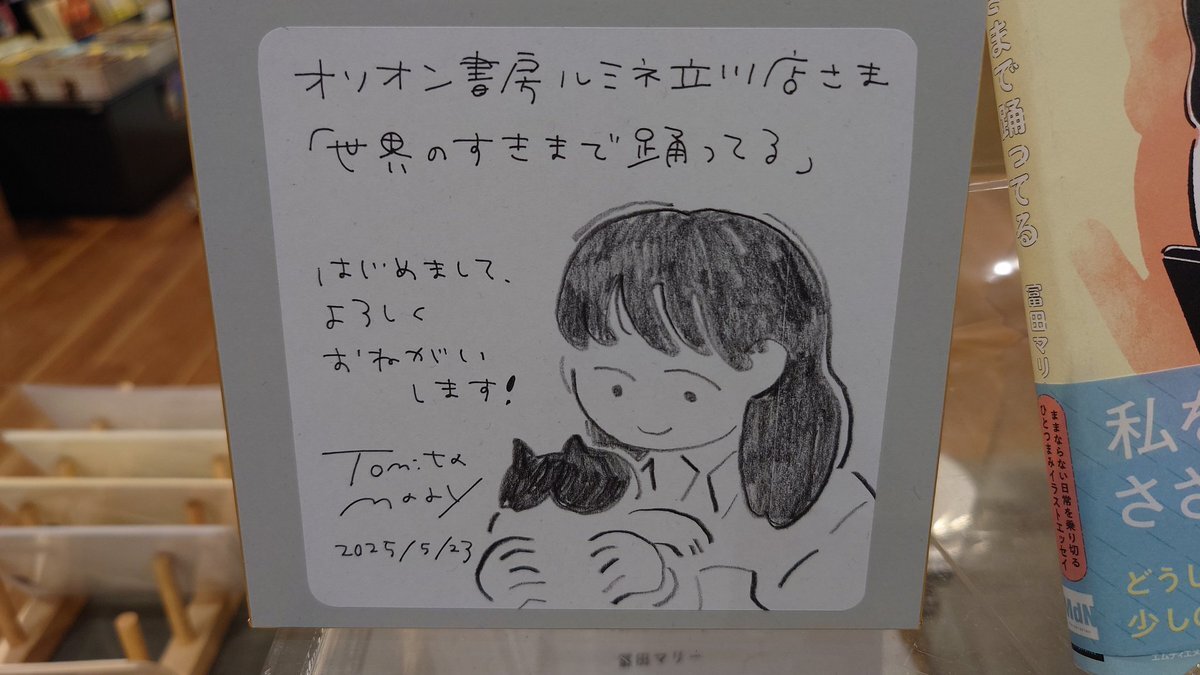 オリオン書房ルミネ立川店さま
「世界のすきまで踊ってる」
はじめまして、
よろしく
おねがい
します!
Tomita
mary
2025/5/23
きまで踊ってる
冨田マリ
ままならない日常を乗り切る
ひとつまみイラストエッセイ
私を
ささ
どうし
少しの
MdN
エムディエヌ